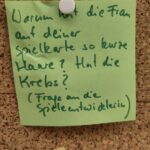 Warum die Frau
auf deiner
Spielkarte so kurze
Haare? Hat die
Krebs?
(Frage an die
Spieleentwicklerin)